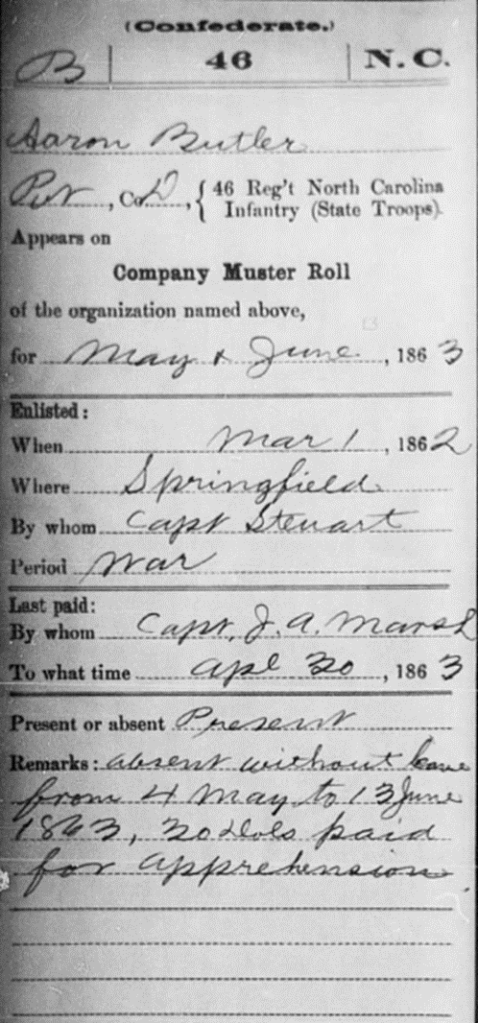 (Confederate.)
B | 46 | N. C.
Aaron Butler
Pvt, Co. D, { 46 Reg't North Carolina
Infantry (State Troops).
Appears on
Company Muster Roll
of the organization named above,
for May & June, 1863
Enlisted:
When Mar 1, 1862
Where Springfield
By whom Capt Stewart
Period War
Last paid:
By whom Capt. J. A. Marsh
To what time Apl 30, 1863
Present or absent Present
Remarks: absent without leave
from 4 May to 13 June
1863, 30 Dols paid
for apprehension